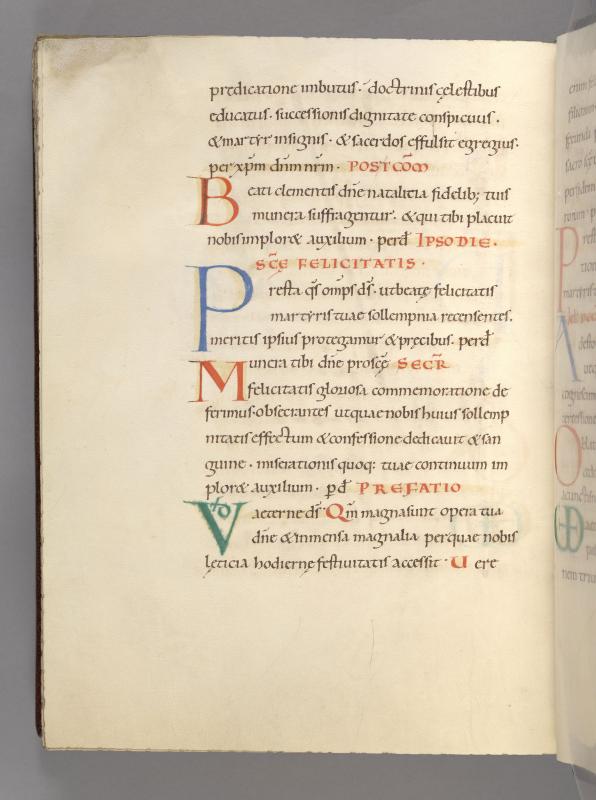 predicatione imbutus · doctrinis cęlestibus
educatus · successionis dignitate conspicuus ·
& martyr insignis · & sacerdos effulsit egregius ·
per xp̄m dn̄m nr̄m · POSTCOM̄
Beati clementis dn̄e natalitia fidelib; tuis
munera suffragentur · & qui tibi placuit
nobis implor& auxilium · per dn̄ IPSO DIE ·
SC̄E FELICITATIS ·
Presta qs̄ omp̄s ds̄ · ut beatę felicitatis
martyris tuae sollempnia recensentes ·
meritis ipsius protegamur & pręcibus · per dn̄
Munera tibi dn̄e pro scę̄ SECR̄
felicitatis gloriosa commemoratione de
ferimus · obsecrantes ut quae nobis huius sollemp
nitatis effectum & confessione dedicauit & san
guine · miserationis quoq: tuae continuum im
plor& auxilium · p̄ d̄ PREFATIO
VD aeterne ds̄ · Qm̄ magna sunt opera tua
dn̄e & inmensa magnalia per quae nobis
lęticia hodiernę festiuitatis accessit · Uere